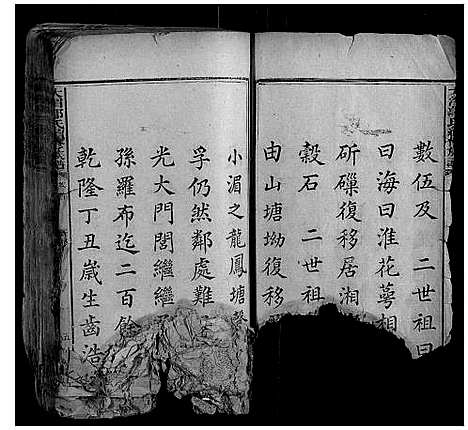 數伍及 二世祖曰
曰海曰淮花萼相
斫磲復移居湘
穀石 二世祖
由山塘坳復移
小湄之龍鳳塘
孚仍然鄰處難
光大門閭繼繼
孫羅布迄二百餘
乾隆丁丑歲生齒浩